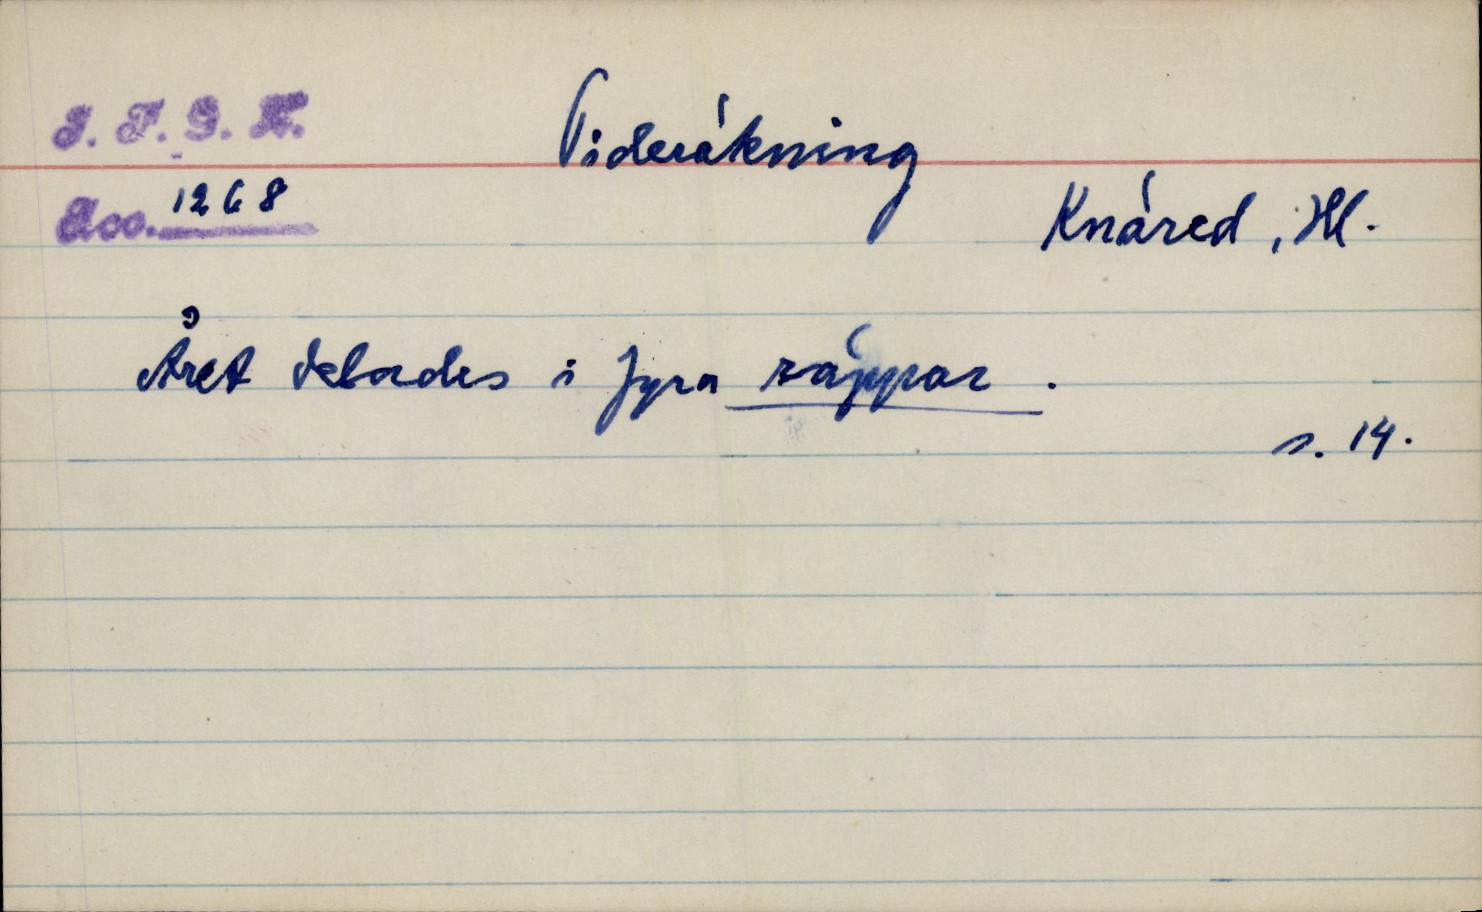 I. F. G. H.
Tideräkning
Acc. 1268
Knäred, Hl.
Året delades i fyra räppar.
s. 14.